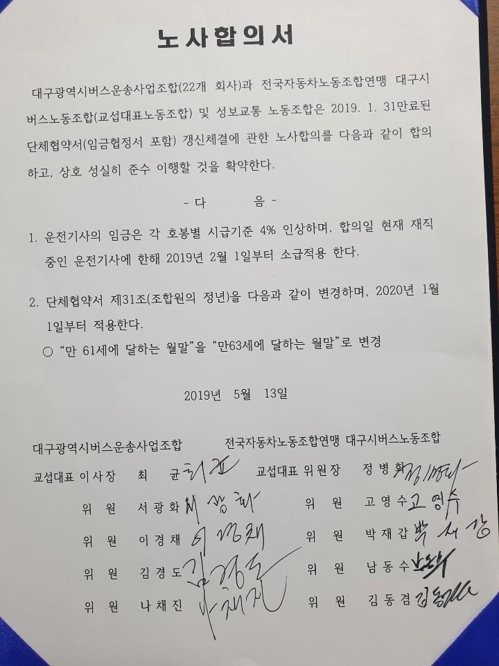 노사합의서
대구광역시버스운송사업조합(22개 회사)과 전국자동차노동조합연맹 대구시
버스노동조합(교섭대표노동조합) 및 성보교통 노동조합은 2019. 1. 31만료된
단체협약서(임금협정서 포함) 갱신체결에 관한 노사합의를 다음과 같이 합의
하고, 상호 성실히 준수 이행할 것을 확약한다.
- 다 음 -
1. 운전기사의 임금은 각 호봉별 시급기준 4% 인상하며, 합의일 현재 재직
중인 운전기사에 한해 2019년 2월 1일부터 소급적용 한다.
2. 단체협약서 제31조(조합원의 정년)을 다음과 같이 변경하며, 2020년 1월
1일부터 적용한다.
○ “만 61세에 달하는 월말”을 “만63세에 달하는 월말”로 변경
2019년 5월 13일
대구광역시버스운송사업조합 전국자동차노동조합연맹 대구시버스노동조합
교섭대표 이사장 최 균 교섭대표 위원장 정 병 화
위 원 서 광 화 서광화 위 원 고 영 수 고영수
위 원 이 경 채 이경채 위 원 박 재 갑
위 원 김 경 도 김경도 위 원 남 동 수
위 원 나 채 진 나채진 위 원 김 동 겸